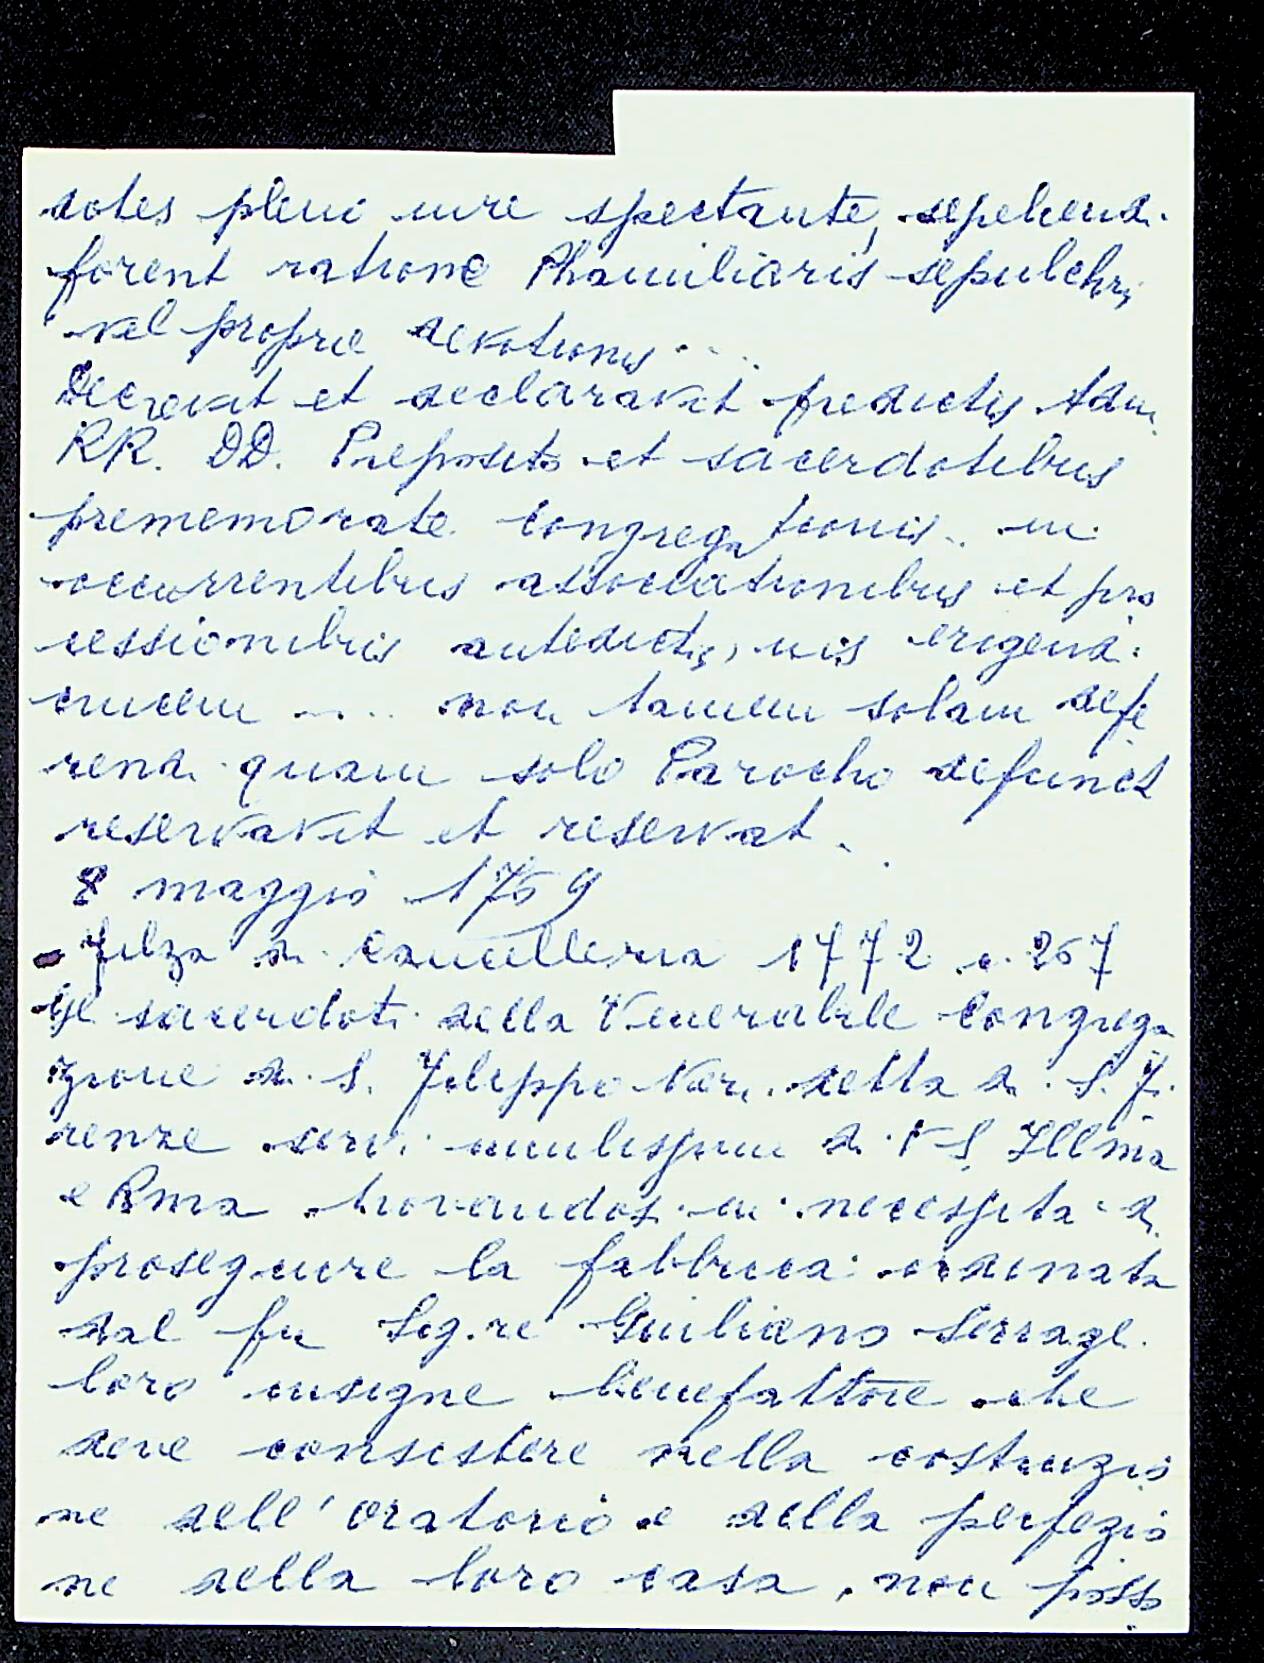 dotes pleno iure spectante, sepeliendi
forent ratione Phamiliaris sepulchri
vel proprie devotionis ....
Decrevit et declaravit predictis Adm.
RR. DD. Preposito et sacerdotibus
prememorate congregationis .. in
occurrentibus associationibus et pro
cessionibus antedictis, ius erigendi
crucem .... non tamen solam defe
rendi quam solo Parocho defuncti
reservavit et reservat.
8 maggio 1759
- Filza di Cancelleria 1772 c. 267
Gl sacerdoti della Venerabile Congrega
zione di S. Filippo Neri detta di S. Fi
renze servi umilissimi di VS Illma
e Rma trovandosi in necessita di
proseguire la fabbrica ordinata
dal fu Sig.re Giuliano Serragl.
loro insigne benefattore che
deve consistere nella costruzio
ne dell'oratorio e della perfezio
ne della loro casa, non posso